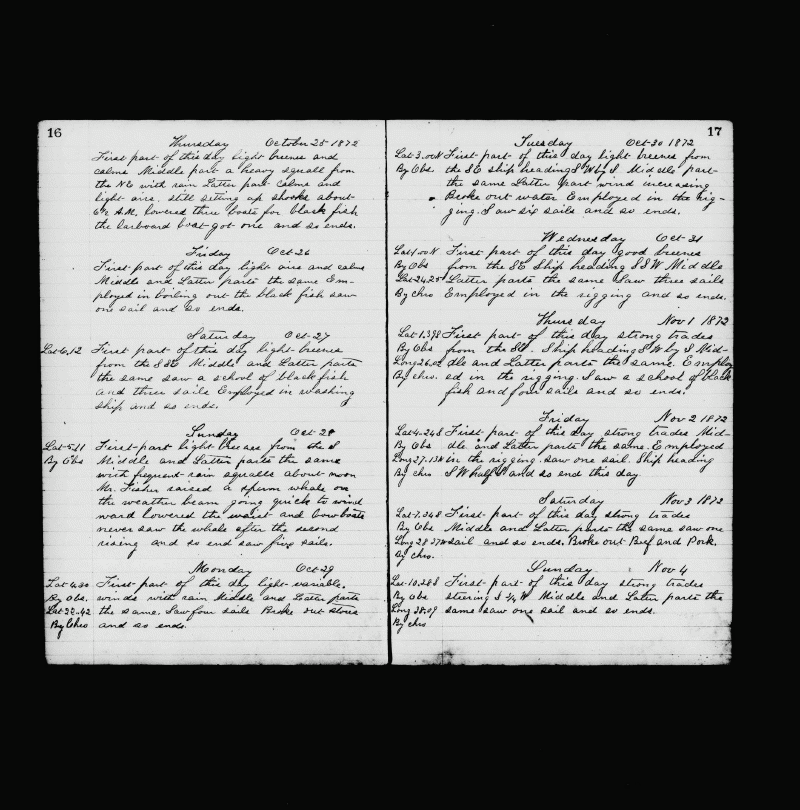 16
Thursday October 25 1872
First part of this day light breeses and
calms Middle part a heavy squall from
the NE with rain Latter part calms and
light airs. still setting up shooks about
6½ A.M. lowered three boats for black fish
the larboard boat got one and so ends.
Friday Oct 26
First part of this day light airs and calms
Middle and Latter parts the same Em-
ployed in boiling out the black fish saw
one sail and so ends.
Saturday Oct-27
Lat 6.12 First part of this day light breeses
from the SSE Middle and Latter parts
the same saw a school of blackfish
and three sails Employed in washing
ship and so ends.
Sunday Oct 28
Lat 5.11 First part light breeses from the S
By Obs Middle and Latter parts the same
with frequent rain squalls about noon
Mr. Fisher raised a spurm whale on
the weather beam going quick to wind
ward lowered the waist and bow boats
never saw the whale after the second
rising and so end saw five sails.
Monday Oct 29
Lat 4.20 First part of this day light variable
By Obs. winds with rain Middle and Latter parts
22.42 the same. Saw four sails Broke out stores
By Chro and so ends.
17
Tuesday Oct-30 1872
Lat 3.00N First part of this day light breeses from
By Obs. the SE ship heading SW by S. Middle part
the same Latter part wind increasing
Broke out water Employed in the rig-
ging. Saw six sails and so ends.
Wednesday Oct-31
Lat 1.00N First part of this day good breese
By Obs from the SE Ship heading SSW Middle
24.25 Latter parts the same Saw three sails
By Chro Employed in the rigging and so ends.
Thursday Nov 1 1872
Lat 1.39S First part of this day strong trades
By Obs from the SE. Ship heading SW by S Mid-
Long 26.02 dle and Latter parts the same. Employ
By chro. ed in the rigging. Saw a school of black
fish and four sails and so ends.
Friday Nov 2 1872
Lat 4.24S First part of this day strong trades Mid-
By Obs dle and Latter parts the same. Employed
Long 27.13W in the rigging. saw one sail. Ship heading
By chro SW half S and so end this day.
Saturday Nov 3 1872
Lat 7.24S First part of this day strong trades
By Obs Middle and Latter parts the same saw one
Long 28.27W sail and so ends. Broke out Beef and Pork.
By chro.
Sunday Nov 4
Lat 10.28S First part of this day strong trades
By Obs steering S ¼ W Middle and Latter parts the
Long 28.09 same saw one sail and so ends.
By chro